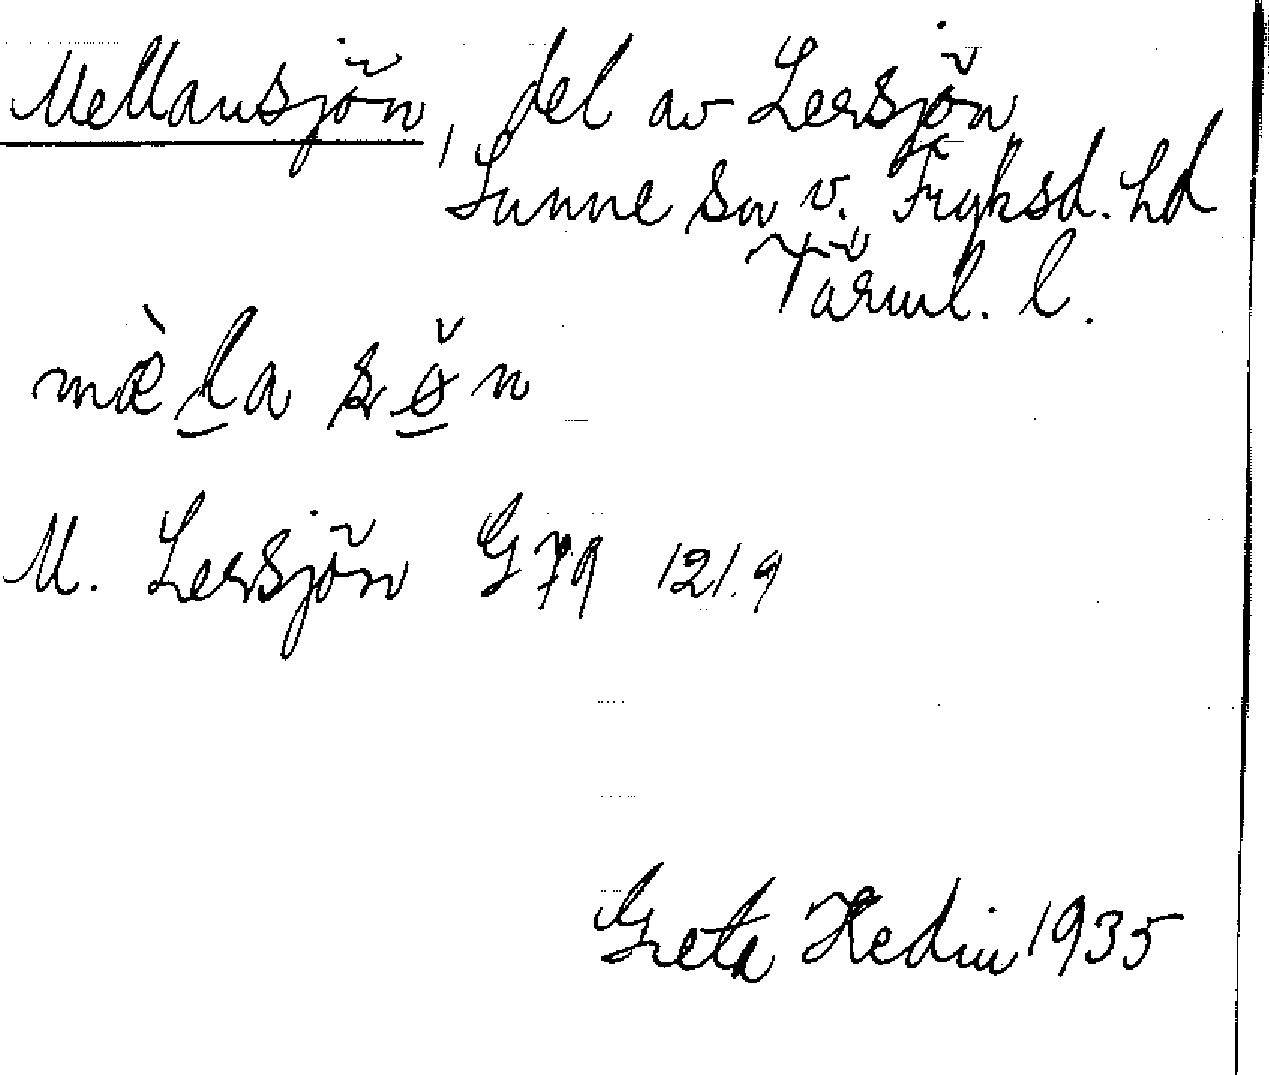 Mellansjön, del av Lersjön
Sunne sn v. Fryksd. hd
Värml. l.
M. Lersjön G 79 121.9
Greta Hedin 1935